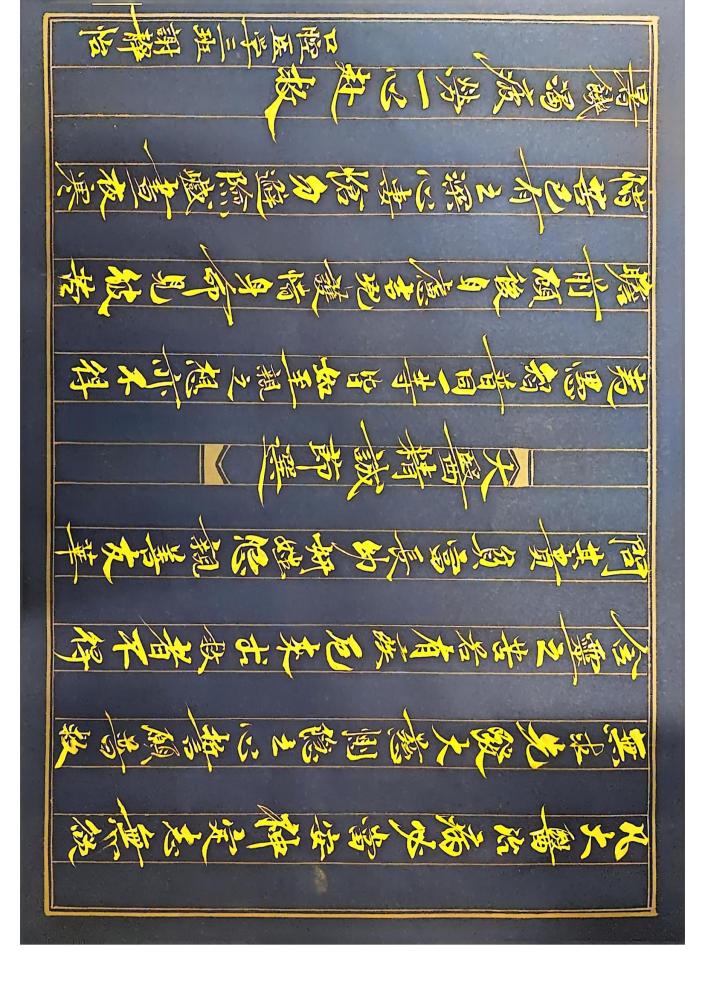 凡大醫治病必當安神定志無欲
無求先發大慈惻隱之心誓願普救
含靈之苦若有疾厄來求救者不得
問其貴貧富長幼妍媸怨親善友華
大醫精誠節選
夷愚智普同一等皆如至親之想亦不得
瞻前顧後自慮吉凶護惜身命見彼苦
惱若己有之深心悽愴勿避險巇晝夜寒
暑飢渴疲勞一心赴救
口腔医学三班 謝靜怡